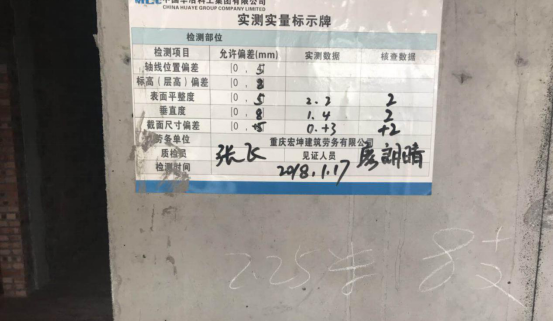 MCC 中国华冶科工集团有限公司
CHINA HUAYE GROUP COMPANY LIMITED
实测实量标示牌
检测部位
检测项目 允许偏差(mm) 实测数据 核查数据
轴线位置偏差 [0, 5]
标高（层高）偏差 [0, 8]
表面平整度 [0, 5] 2.2 2
垂直度 [0, 8] 1.4 2
截面尺寸偏差 [0, +5] 0.+3 +2
劳务单位 重庆宏坤建筑劳务有限公司
质检员 张飞 见证人员 廖朗晴
检测时间 2018.1.17
225 8